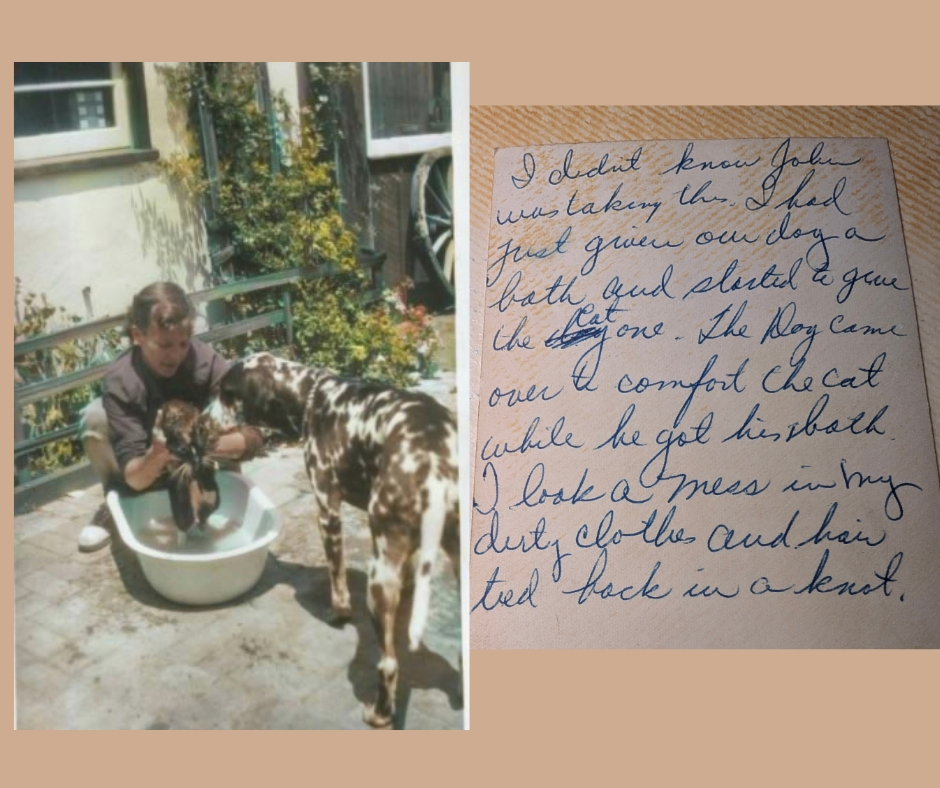 I didn't know John
was taking this. I had
just given our dog a
bath and started to give
the cat one. The Dog came
over to comfort the cat
while he got his bath.
I look a mess in my
dirty clothes and hair
tied back in a knot.